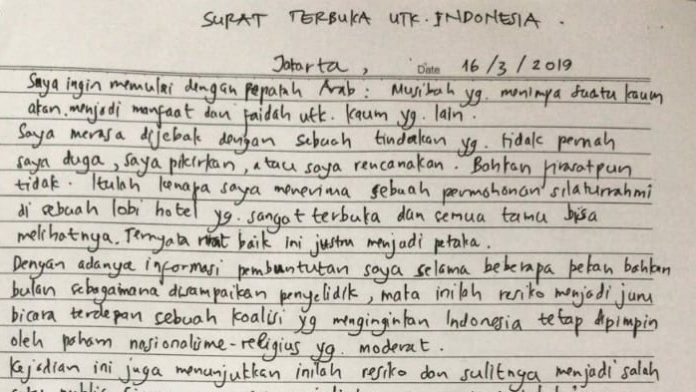 SURAT TERBUKA UTK. INDONESIA.
Jakarta, Date 16/3/2019
Saya ingin memulai dengan pepatah Arab : Musibah yg. menimpa suatu kaum
akan menjadi manfaat dan faidah utk. kaum yg. lain.
Saya merasa dijebak dengan sebuah tindakan yg. tidak pernah
saya duga, saya pikirkan, atau saya rencanakan. Bahkan firasatpun
tidak. Itulah kenapa saya menerima sebuah permohonan silaturrahmi
di sebuah lobi hotel yg. sangat terbuka dan semua tamu bisa
melihatnya. Ternyata niat baik ini justru menjadi petaka.
Dengan adanya informasi pembuntutan saya selama beberapa pekan bahkan
bulan sebagamana disampaikan penyelidik, maka inilah resiko menjadi juru
bicara terdepan sebuah koalisi yg menginginkan Indonesia tetap dipimpin
oleh paham nasionalisme-religius yg. moderat.
Kejadian ini juga menunjukkan inilah resiko dan sulitnya menjadi salah